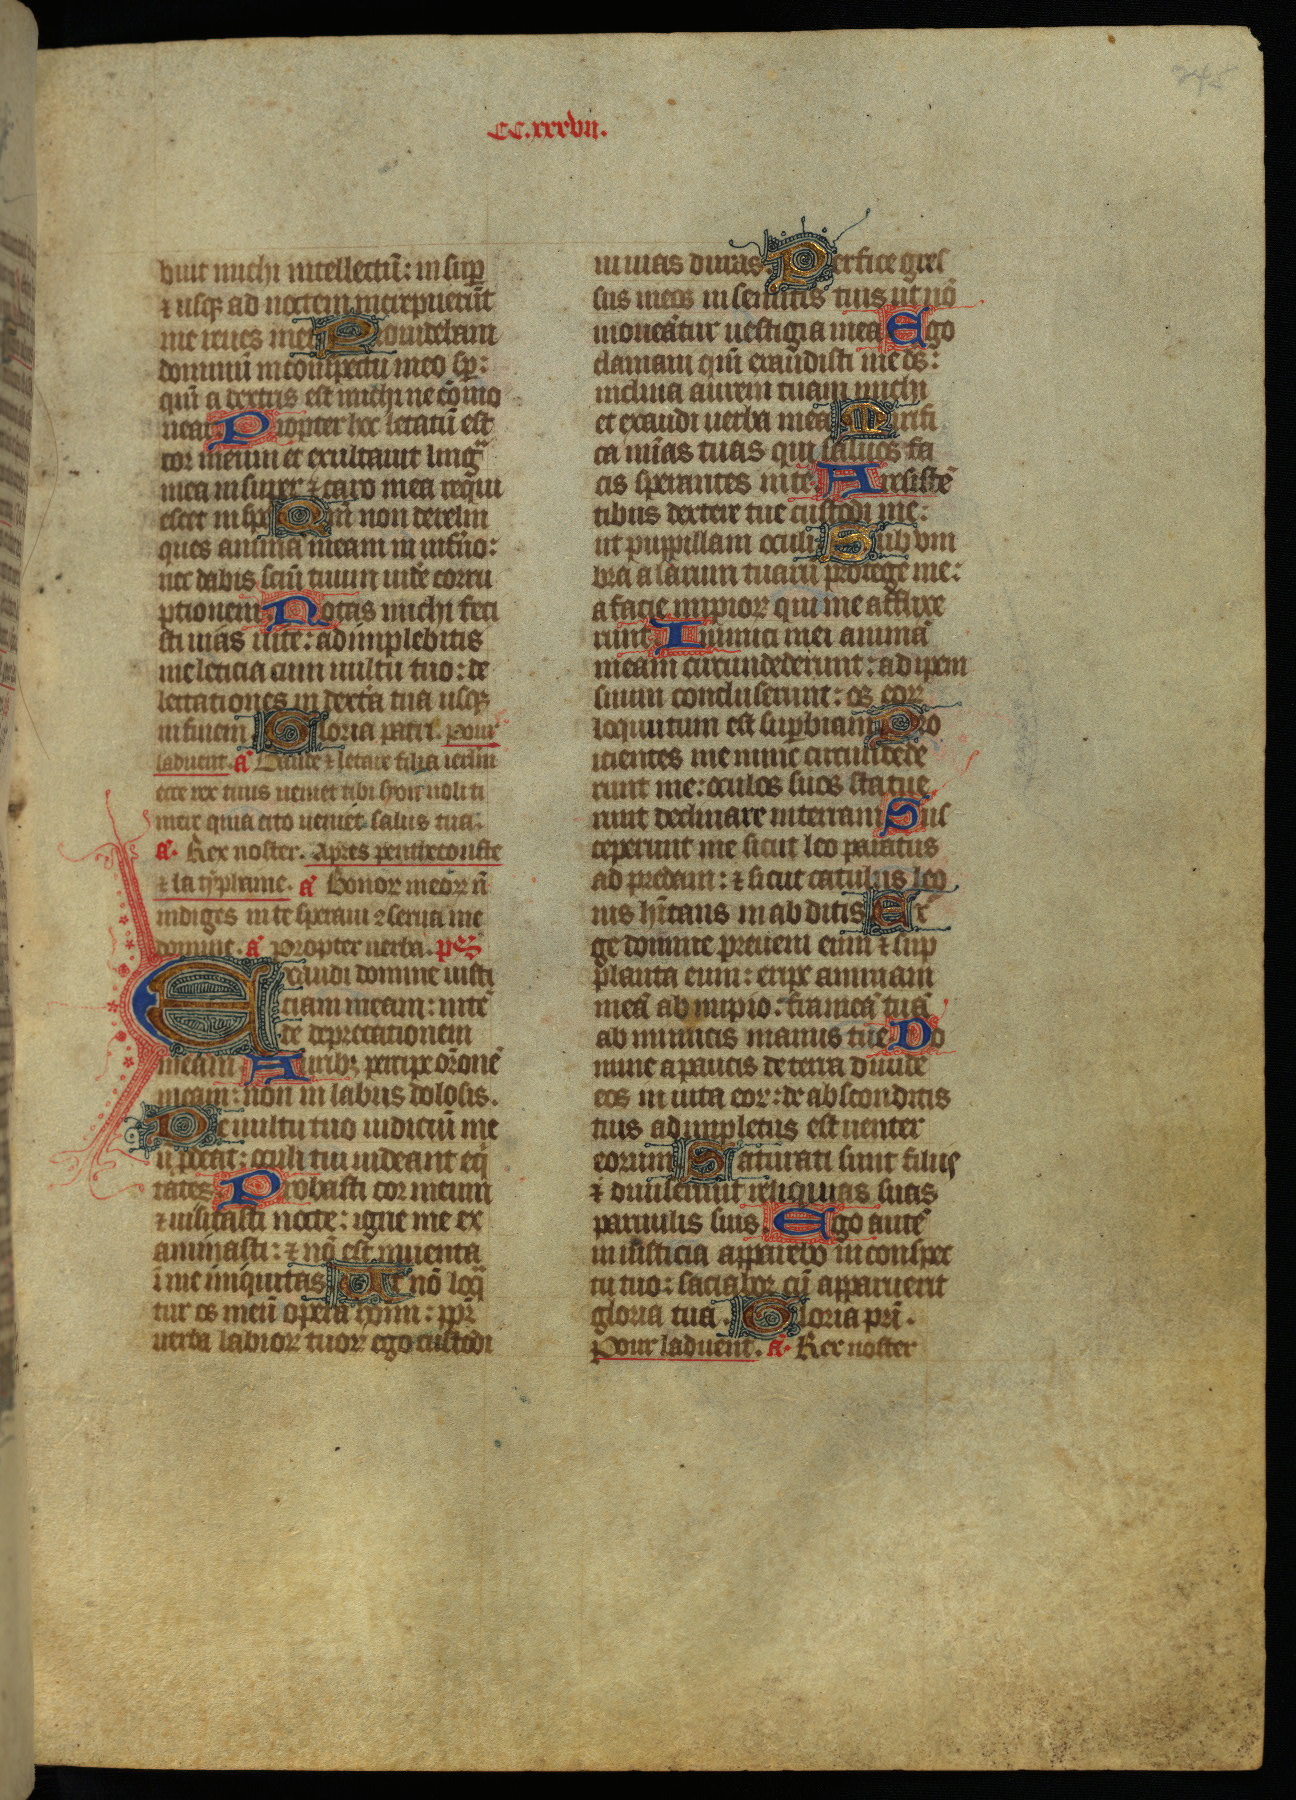 CC.xxxvii.
245
buit michi intellectū: insup̄
⁊ usq; ad noctem increpuerūt
me renes mei Prouidebam
dominū in conspectu meo sp̄:
qm̄ a dextris est michi ne cōmo
uear Propter hoc letatū est
cor meum et exultauit lingᵃ
mea insuper ⁊ caro mea requi
escet in spe Qm̄ non derelin
ques animā meam in inf̄no:
nec dabis scm̄ tuum uidē corru
ptionem Notas michi feci
sti uias uite: adimplebitis
me leticia cum uultu tuo: de
lectationes in dext̄a tua usq;
in finem Gloria patri. Pour
laduent. Aᵃ Gaude ⁊ letare filia ierl̄m
ecce rex tuus ueniet tibi syon noli ti
mere quia cito ueniet salus tua.
Aᵃ. Rex noster. Apres penthecouste
⁊ la typhame. Aᵃ Bonor meorꝝ n̄
indiges in te speraui ⁊serua me
domine. Aᵃ Propter uerba. ps̄
Exaudi domine iusti
ciam meam: intē
de deprecationem
meam Aurib; percipe or̄onē
meam: non in labiis dolosis.
De uultu tuo iudiciū me
ū ꝓdeat: oculi tui uideant eq̄
tates Probasti cor meum
⁊ uisitasti nocte: igne me ex
aminasti: ⁊ nō est inuenta
ī me iniquitas Ut nō loq̄
tur os meū opera homī: pp̄t
uerba labiorꝝ tuorꝝ ego custodi
ui uias duras. Perfice gres
sus meos in semitis tuis ut nō
moueātur uestigia mea Ego
clamaui qm̄ exaudisti me ds̄:
inclina aurem tuam michi
et exaudi uerba mea Mirifi
ca mīas tuas qui saluos fa
cis sperantes in te. A resistē
tibus dextere tue custodi me:
ut puppillam oculi Sub vm
bra alarum tuarū protege me:
a facie impiorꝝ qui me afflixe
runt Inimici mei animā
meam circundederunt: adipem
suum concluserunt: os eorꝝ
loquutum est suꝑbiam Pro
icientes me nunc circundede
runt me: oculos suos statue
runt declinare in terram Sus
ceperunt me sicut leo paratus
ad predam: ⁊ sicut catulus leo
nis hītans in ab ditis Exᵉ
ge domine preueni eum ⁊ sup
planta eum: eripe animam
meā ab impio: frameā tuā
ab inimicis manus tue Do
mine a paucis de terra diuide
eos in uita eorꝝ: de absconditis
tuis adimpletus est uenter
eorum Saturati sunt filiis
⁊ diuiserunt reliquias suas
paruulis suis. Ego autē
in iusticia apparebo in conspec
tu tuo: saciabor cū apparuerit
gloria tua. Gloria pr̄i.
Pour laduent. Aᵃ. Rex noster